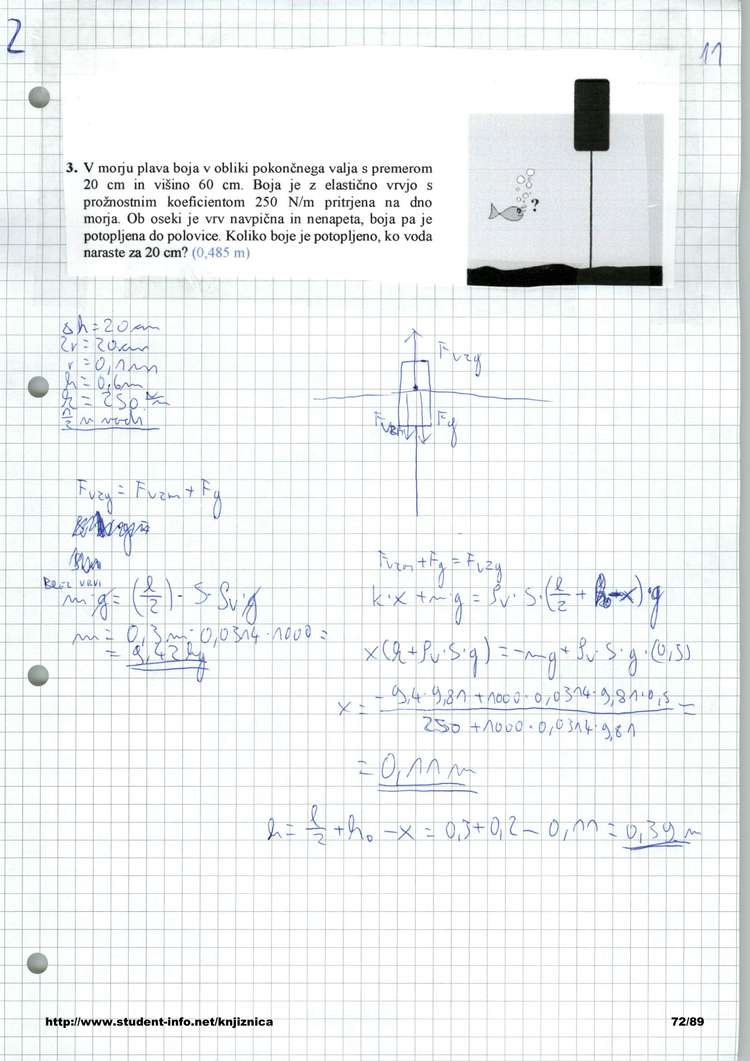 2
11
3. V morju plava boja v obliki pokončnega valja s premerom
20 cm in višino 60 cm. Boja je z elastično vrvjo s
prožnostnim koeficientom 250 N/m pritrjena na dno
morja. Ob oseki je vrv navpična in nenapeta, boja pa je
potopljena do polovice. Koliko boje je potopljeno, ko voda
naraste za 20 cm? (0,485 m)
?
Δh = 20 cm
2r = 20 cm
r = 0,1 m
h = 0,6 m
k = 250 N/m
h/2 v vodi
Fvzg
Fvzm
Fg
Fvzg = Fvzm + Fg
BREZ VRVI
m·g = (l/2) · S · ρv · g
m = 0,3 m · 0,0314 · 1000 =
= 9,42 kg
Fvzm + Fg = Fvzg
k·x + m·g = ρv · S · (l/2 + h0 - x) · g
x(k + ρv · S · g) = -mg + ρv · S · g · (0,5)
x = (-9,4 · 9,81 + 1000 · 0,0314 · 9,81 · 0,5) / (250 + 1000 · 0,0314 · 9,81) =
= 0,11 m
h = l/2 + h0 - x = 0,3 + 0,2 - 0,11 = 0,39 m
http://www.student-info.net/knjiznica
72/89